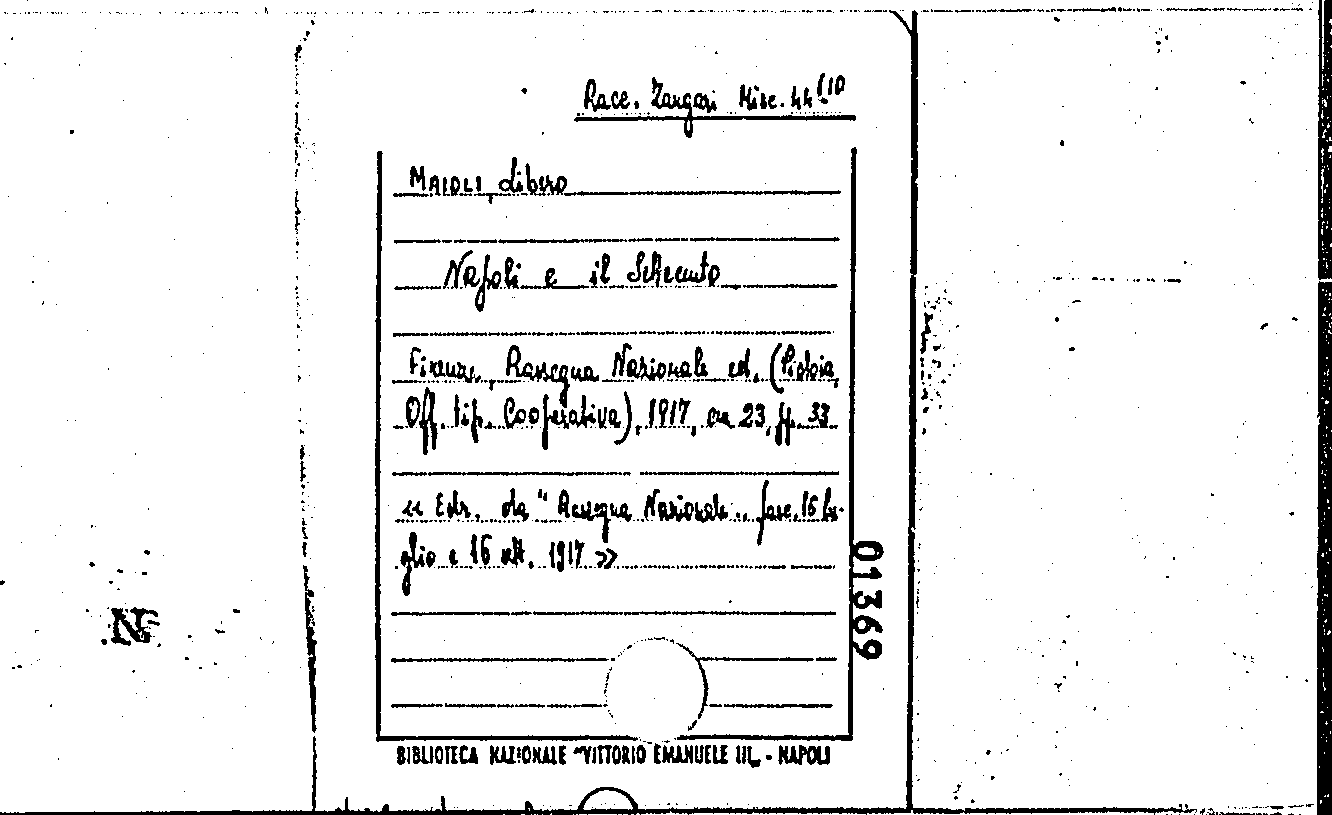 Racc. Zangari Misc. 44(10
MAIOLI, Libero
Napoli e il Seicento
Firenze, Rassegna Nazionale ed. (Pistoia,
Off. tip. Cooperativa), 1917, cm 23, pp. 33
« Estr. da "Rassegna Nazionale„ fasc. 16 lu-
glio e 16 ott. 1917 »
01369
BIBLIOTECA NAZIONALE "VITTORIO EMANUELE III„ - NAPOLI